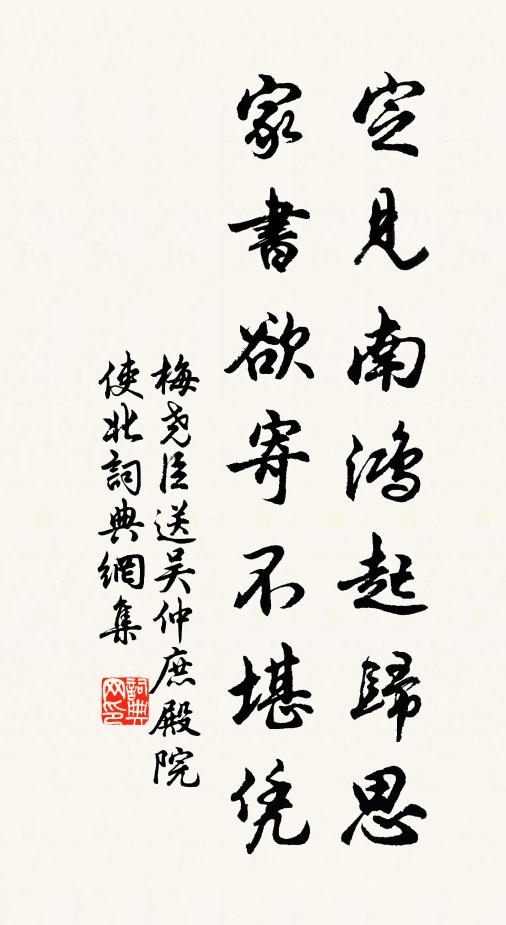 定見南鴻起歸思
家書欲寄不堪凭
梅堯臣送吴仲庶殿院
使北詞典網集
詞典網印